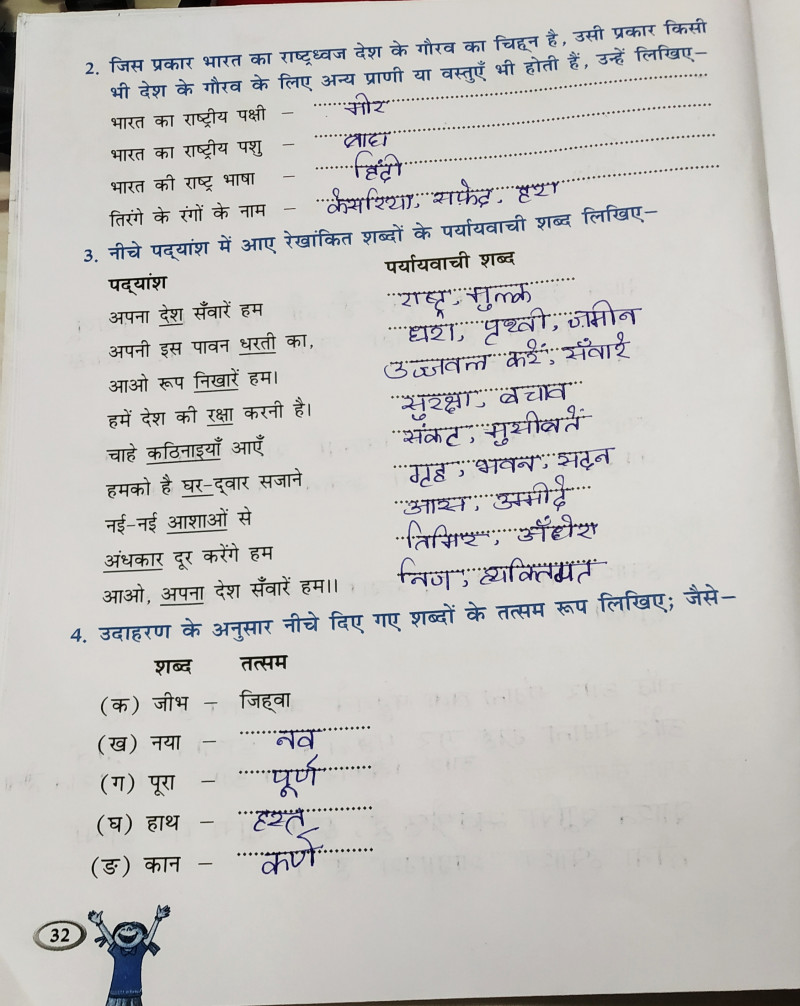 2. जिस प्रकार भारत का राष्ट्रध्वज देश के गौरव का चिह्न है, उसी प्रकार किसी
भी देश के गौरव के लिए अन्य प्राणी या वस्तुएँ भी होती हैं, उन्हें लिखिए–
भारत का राष्ट्रीय पक्षी – मोर
भारत का राष्ट्रीय पशु – बाघ
भारत की राष्ट्र भाषा – हिंदी
तिरंगे के रंगों के नाम – केसरिया, सफ़ेद, हरा
3. नीचे पद्यांश में आए रेखांकित शब्दों के पर्यायवाची शब्द लिखिए–
पद्यांश पर्यायवाची शब्द
अपना देश सँवारें हम राष्ट्र, मुल्क
अपनी इस पावन धरती का, धरा, पृथ्वी, ज़मीन
आओ रूप निखारें हम। उज्जवल करें, सँवारें
हमें देश की रक्षा करनी है। सुरक्षा, बचाव
चाहे कठिनाइयाँ आएँ संकट, मुसीबतें
हमको है घर-द्वार सजाने गृह, भवन, सदन
नई-नई आशाओं से आस, उम्मीदें
अंधकार दूर करेंगे हम तिमिर, अँधेरा
आओ, अपना देश सँवारें हम।। निज, व्यक्तिगत
4. उदाहरण के अनुसार नीचे दिए गए शब्दों के तत्सम रूप लिखिए; जैसे–
शब्द तत्सम
(क) जीभ – जिह्वा
(ख) नया – नव
(ग) पूरा – पूर्ण
(घ) हाथ – हस्त
(ङ) कान – कर्ण
32